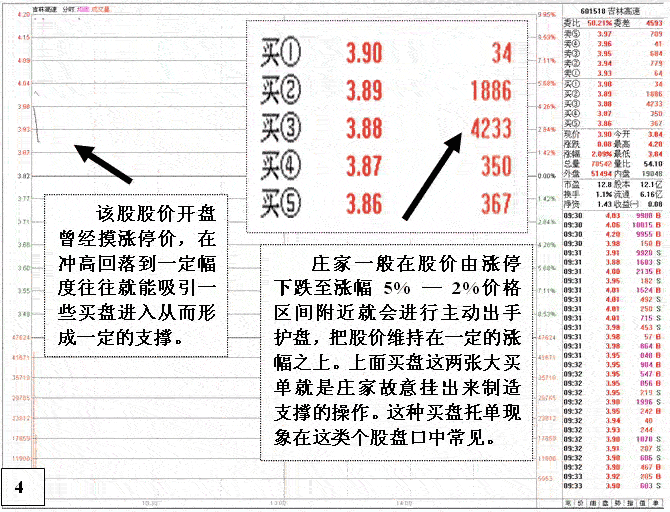 吉林高速 分时 均线 成交量
601518 吉林高速
委比 50.21% 委差 4593
卖⑤ 3.97 709
卖④ 3.96 41
卖③ 3.95 684
卖② 3.94 779
卖① 3.93 64
买① 3.90 34
买② 3.89 1886
买③ 3.88 4233
买④ 3.87 350
买⑤ 3.86 367
现价 3.90 今开 3.84
涨跌 0.08 最高 4.20
涨幅 2.09% 最低 3.84
总量 70542 量比 54.10
外盘 51494 内盘 19048
市盈 12.8 股本 12.1亿
换手 1.1% 流通 6.16亿
净资 1.43 收益㈠ 0.08
买① 3.90 34
买② 3.89 1886
买③ 3.88 4233
买④ 3.87 350
买⑤ 3.86 367
该股股价开盘
曾经摸涨停价，在
冲高回落到一定幅
度往往就能吸引一
些买盘进入从而形
成一定的支撑。
庄家一般在股价由涨停
下跌至涨幅 5% — 2%价格
区间附近就会进行主动出手
护盘，把股价维持在一定的涨
幅之上。上面买盘这两张大买
单就是庄家故意挂出来制造
支撑的操作。这种买盘托单现
象在这类个股盘口中常见。
4.20
4.15
4.09
4.04
3.98
3.93
3.87
3.82
3.77
3.71
3.66
3.60
3.55
3.49
3.44
47624
41671
35718
29765
23812
17859
11906
5953
9.95%
8.53%
7.11%
5.68%
4.26%
2.84%
1.42%
0.00%
1.42%
2.84%
09:30 4.03 9900 B
09:30 4.06 10015 B
09:30 4.20 9955 B
09:30 4.00 150 B
09:31 3.91 9920 S
09:31 3.88 1603 S
09:31 4.00 2135 B
09:31 3.95 182 S
09:31 4.01 1524 B
09:31 4.01 492 S
09:31 4.01 250 S
09:31 4.01 715 S
09:31 3.98 453 S
09:31 3.98 57 B
09:31 3.98 864 B
09:31 3.95 840 B
09:32 3.95 904 B
09:32 3.95 547 B
09:32 3.95 856 B
09:32 3.95 219 S
09:32 3.90 1996 S
09:32 3.95 242 B
09:32 3.94 40
09:32 3.93 244
09:32 3.90 1070 S
09:32 3.91 207 S
09:32 3.90 606 S
09:32 3.90 467 B
09:33 3.92 205 B
09:33 3.90 603 S
10:30
13:00
14:00
笔 价 细 盘 势 指 值 单
4